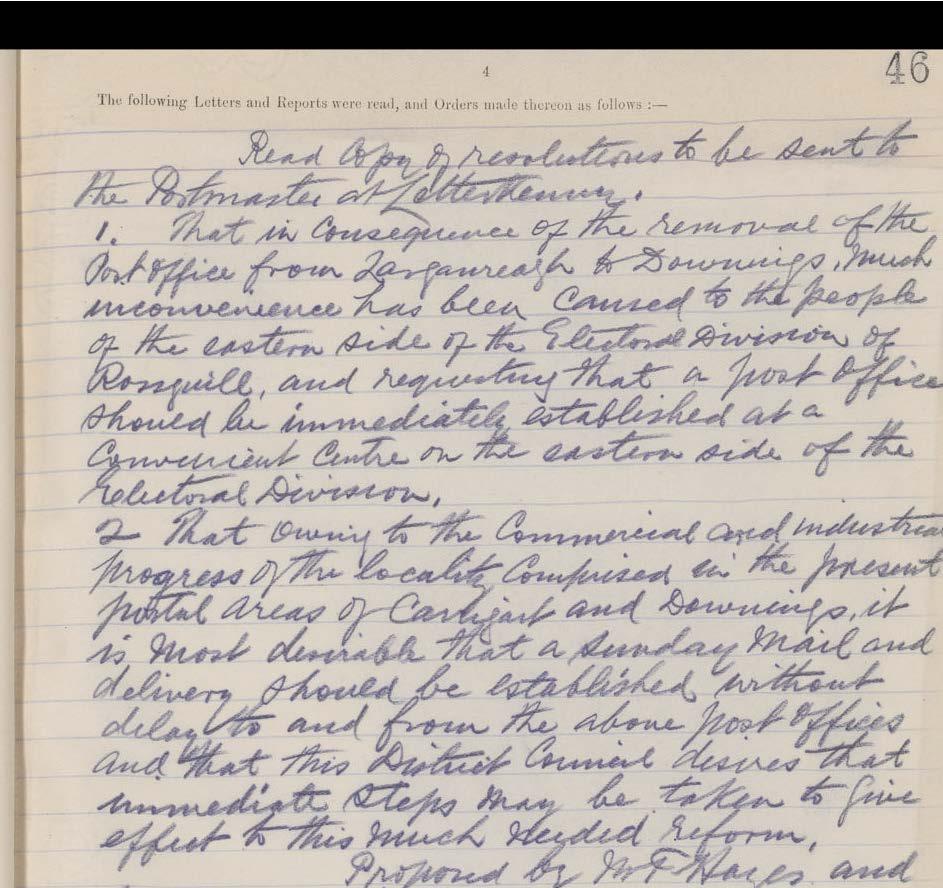 46
4
The following Letters and Reports were read, and Orders made thereon as follows :—
Read Copy of resolutions to be sent to
the Postmaster at Letterkenny.
1. That in Consequence of the removal of the
Post Office from Larganreagh to Downings, Much
inconvenience has been Caused to the people
of the eastern side of the Electoral Division of
Rossguill, and requesting that a post Office
should be immediately established at a
Convenient Centre on the eastern side of the
Electoral Division.
2 That owing to the Commercial and industrial
progress of the locality Comprised in the present
postal areas of Carrigart and Downings, it
is Most desirable that a Sunday Mail and
delivery should be established without
delay to and from the above post Offices
and that this District Council desires that
immediate steps may be taken to give
effect to this Much Needed reform.
Proposed by Mr F Hayes and